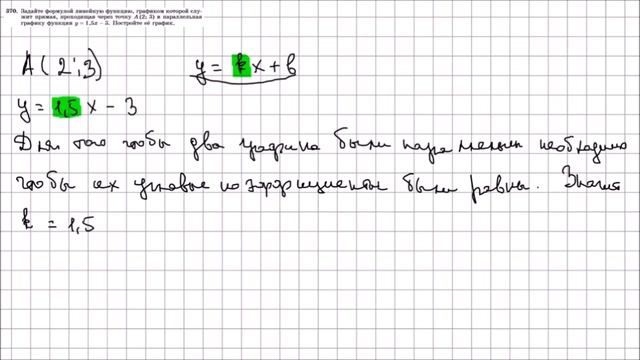 370. Задайте формулой линейную функцию, графиком которой слу-
жит прямая, проходящая через точку A(2; 3) и параллельная
графику функции y = 1,5x − 3. Постройте её график.
A(2;3) y = kx + b
y = 1,5x − 3
Для того чтобы два графика были параллельны необходимо
чтобы их угловые коэффициенты были равны. Значит
k = 1,5